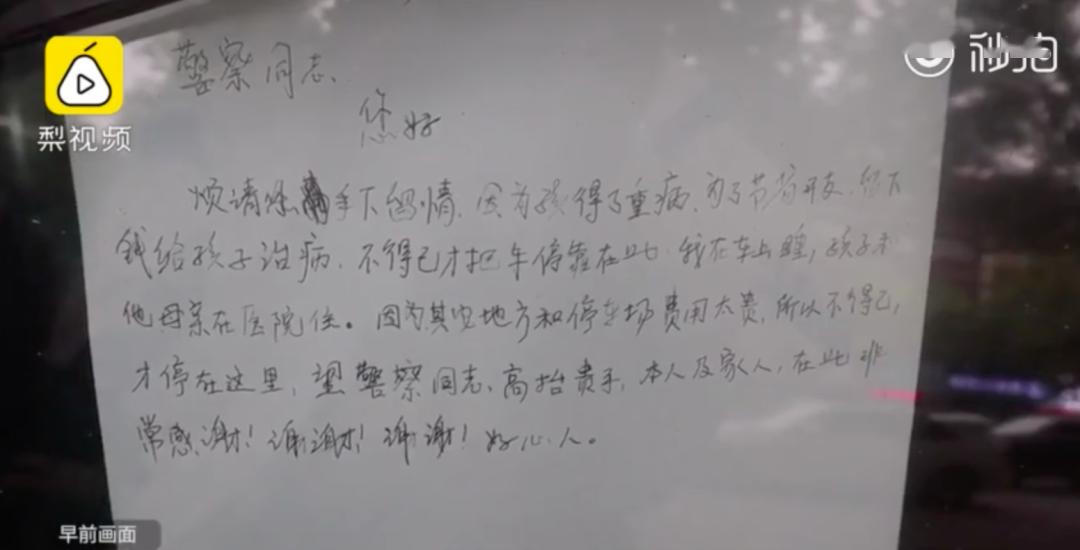 梨视频
秒拍
警察同志
您好
烦请您手下留情,因为孩得了重病,为了节省开支,留下
钱给孩子治病,不得已才把车停靠在此,我在车上睡,孩子和
他母亲在医院住。因为其它地方和停车场费用太贵,所以不得已,
才停在这里,望警察同志、高抬贵手,本人及家人,在此非
常感谢!谢谢!谢谢!好心人。
早前画面